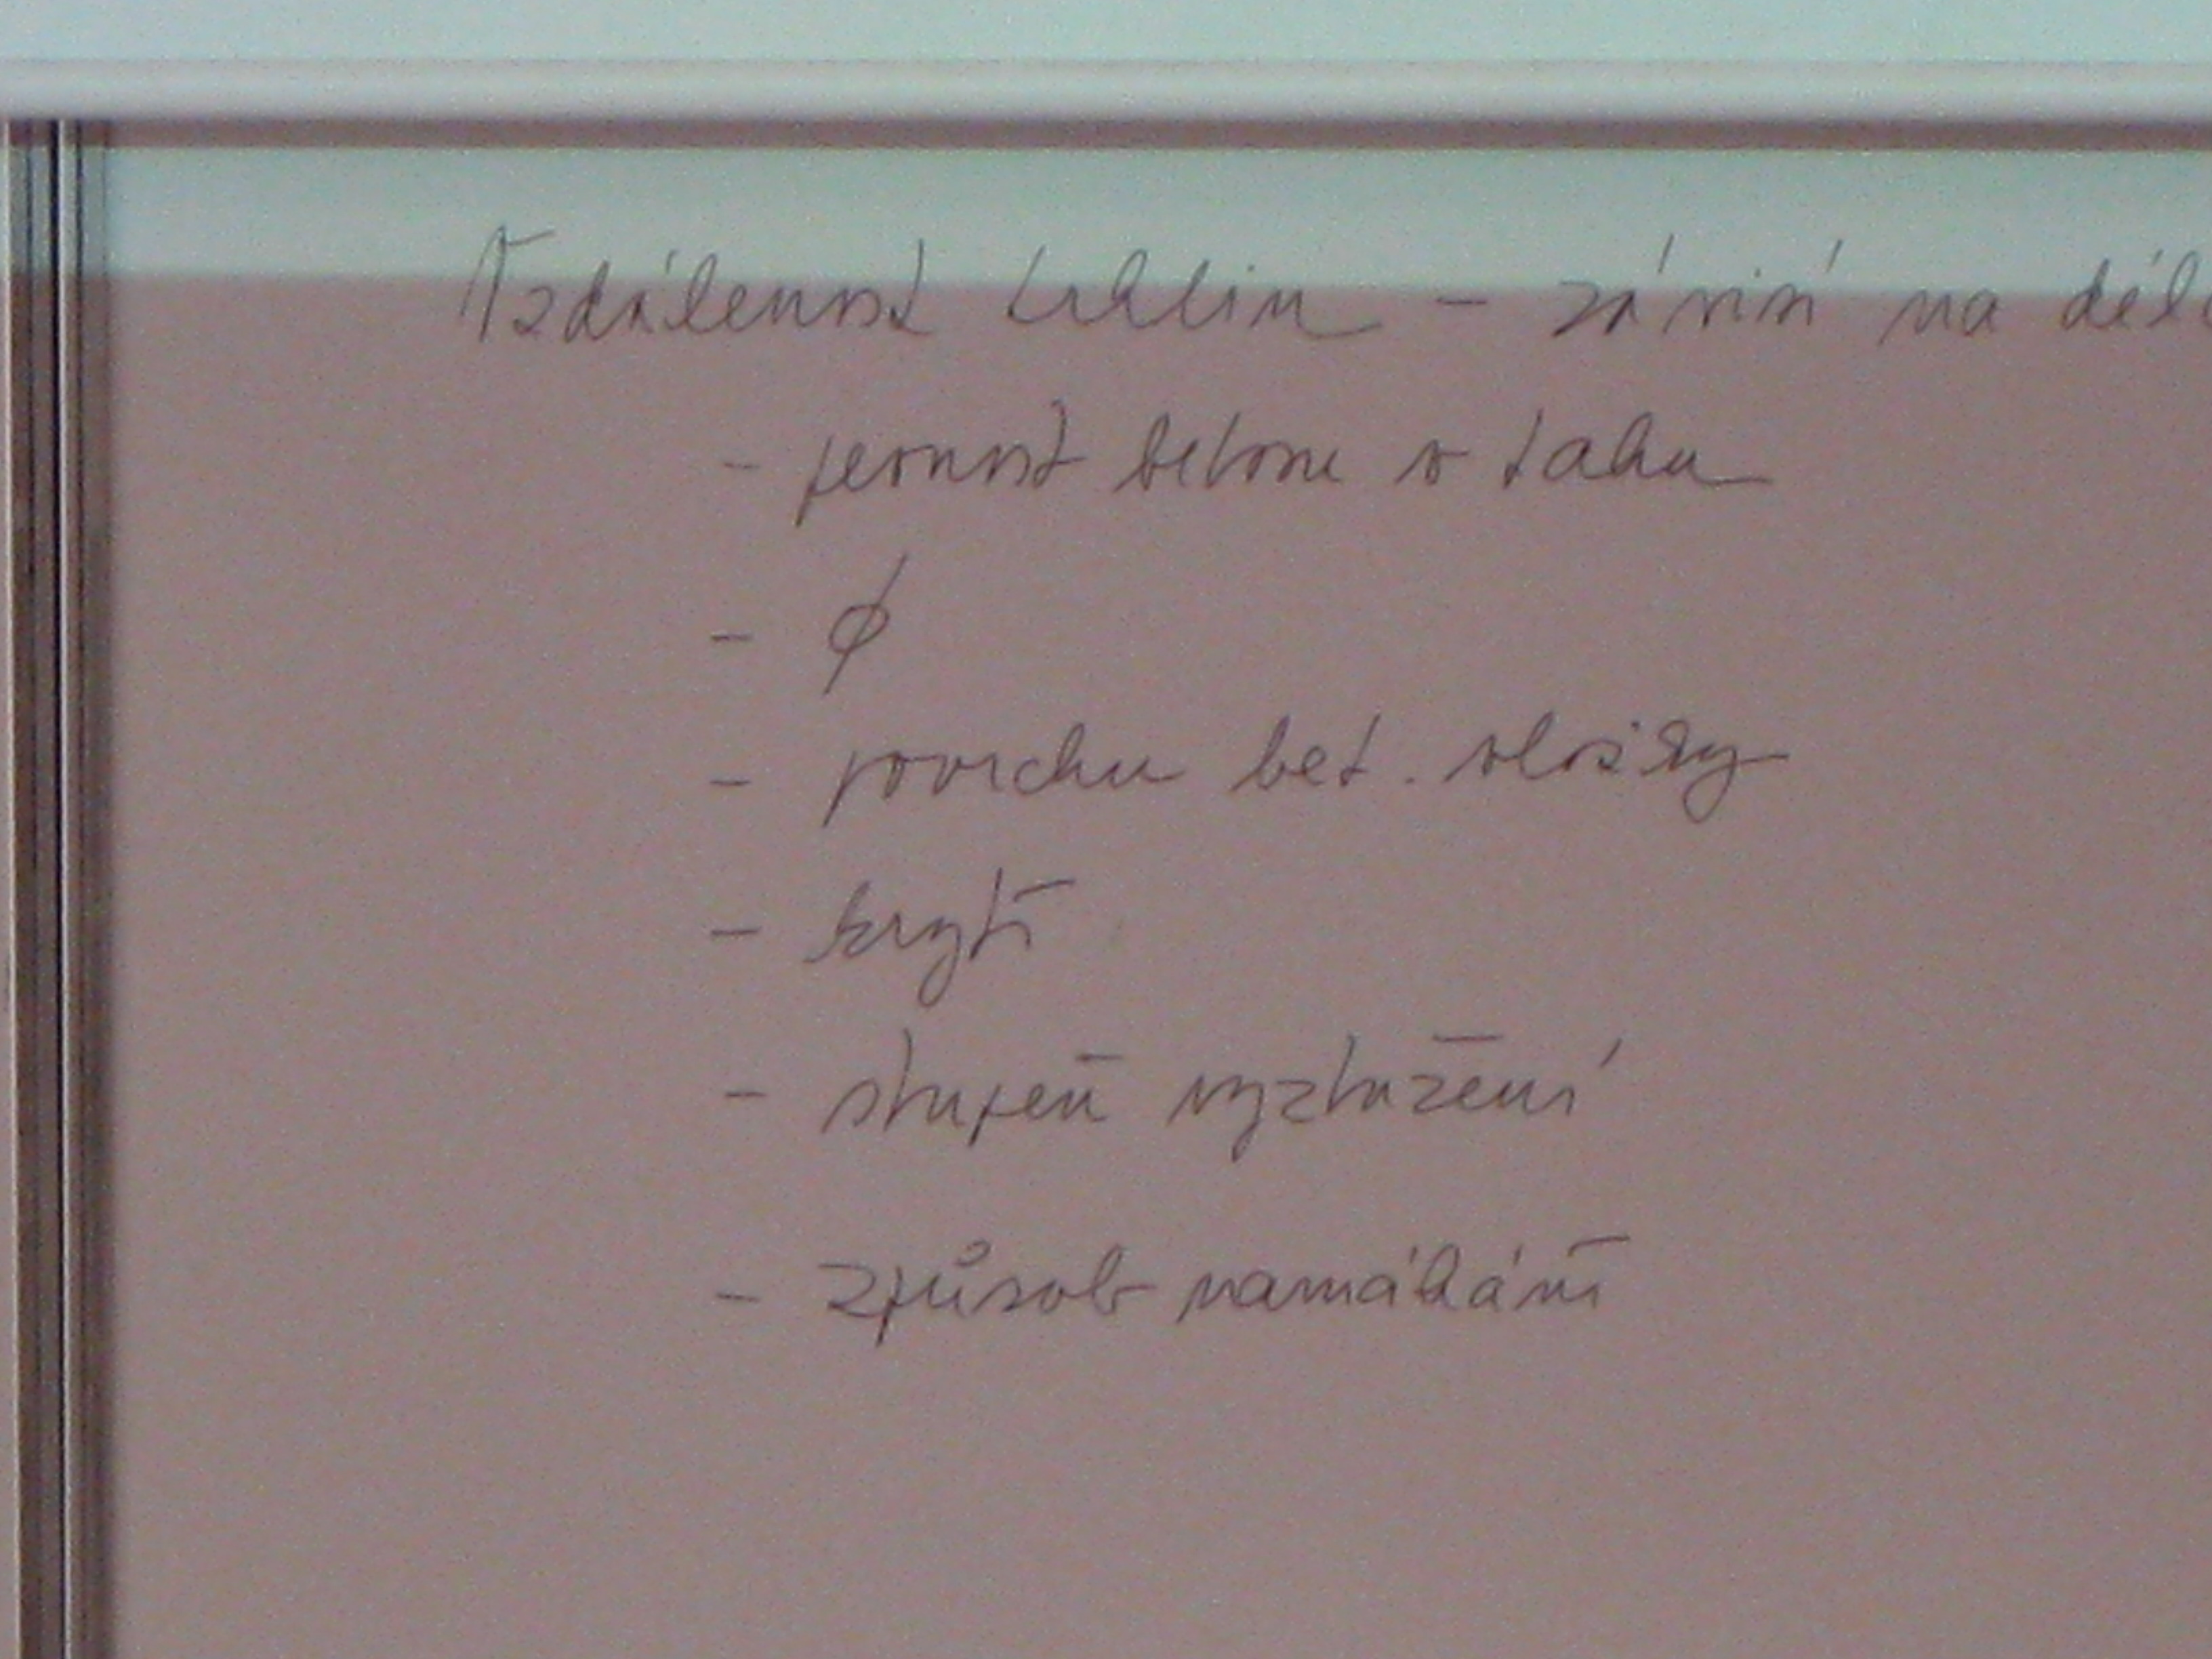 Vzdálenost trhlin – závisí na dél
- pevnost betonu v tahu
- ϕ
- povrchu bet. vložky
- krytí
- stupeň vyztužení
- způsob namáhání